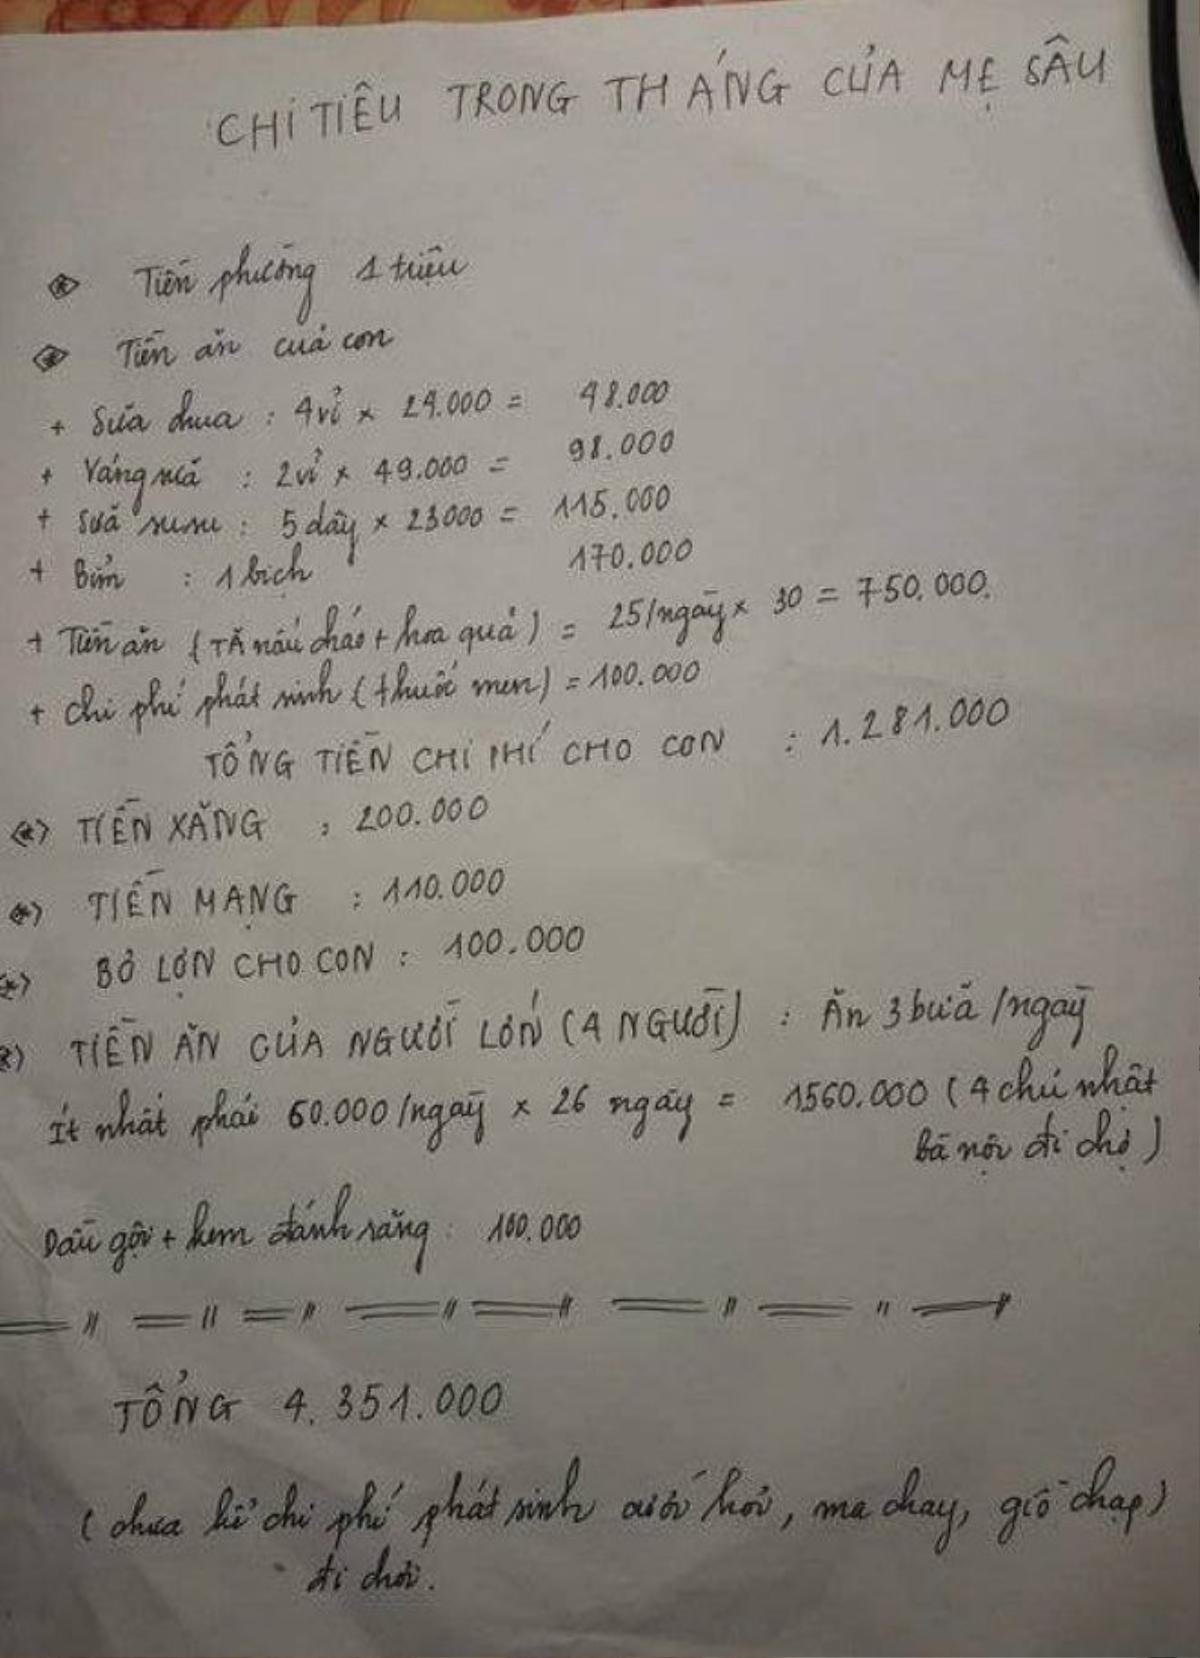 CHI TIÊU TRONG THÁNG CỦA MẸ SÂU
Tiền phòng 1 triệu
Tiền ăn của con
+ Sữa chua : 4 vỉ x 24.000 = 48.000
+ Váng sữa : 2 vỉ x 49.000 = 98.000
+ Sữa susu : 5 dây x 23000 = 115.000
+ Bỉm : 1 bịch 170.000
+ Tiền ăn (TĂ nấu cháo + hoa quả) = 25/ngày x 30 = 750.000.
+ chi phí phát sinh (thuốc men) = 100.000
TỔNG TIỀN CHI PHÍ CHO CON : 1.281.000
<*> TIỀN XĂNG : 200.000
<*> TIỀN MẠNG : 110.000
<*> BỎ LỢN CHO CON : 100.000
*) TIỀN ĂN CỦA NGƯỜI LỚN (4 NGƯỜI) : Ăn 3 bữa /ngày
Ít nhất phải 60.000/ngày x 26 ngày = 1560.000 (4 chủ nhật
bà nội đi chợ)
Dầu gội + kem đánh răng : 100.000
TỔNG 4.351.000
(chưa kể chi phí phát sinh cưới hỏi, ma chay, giỗ chạp)
đi chơi.